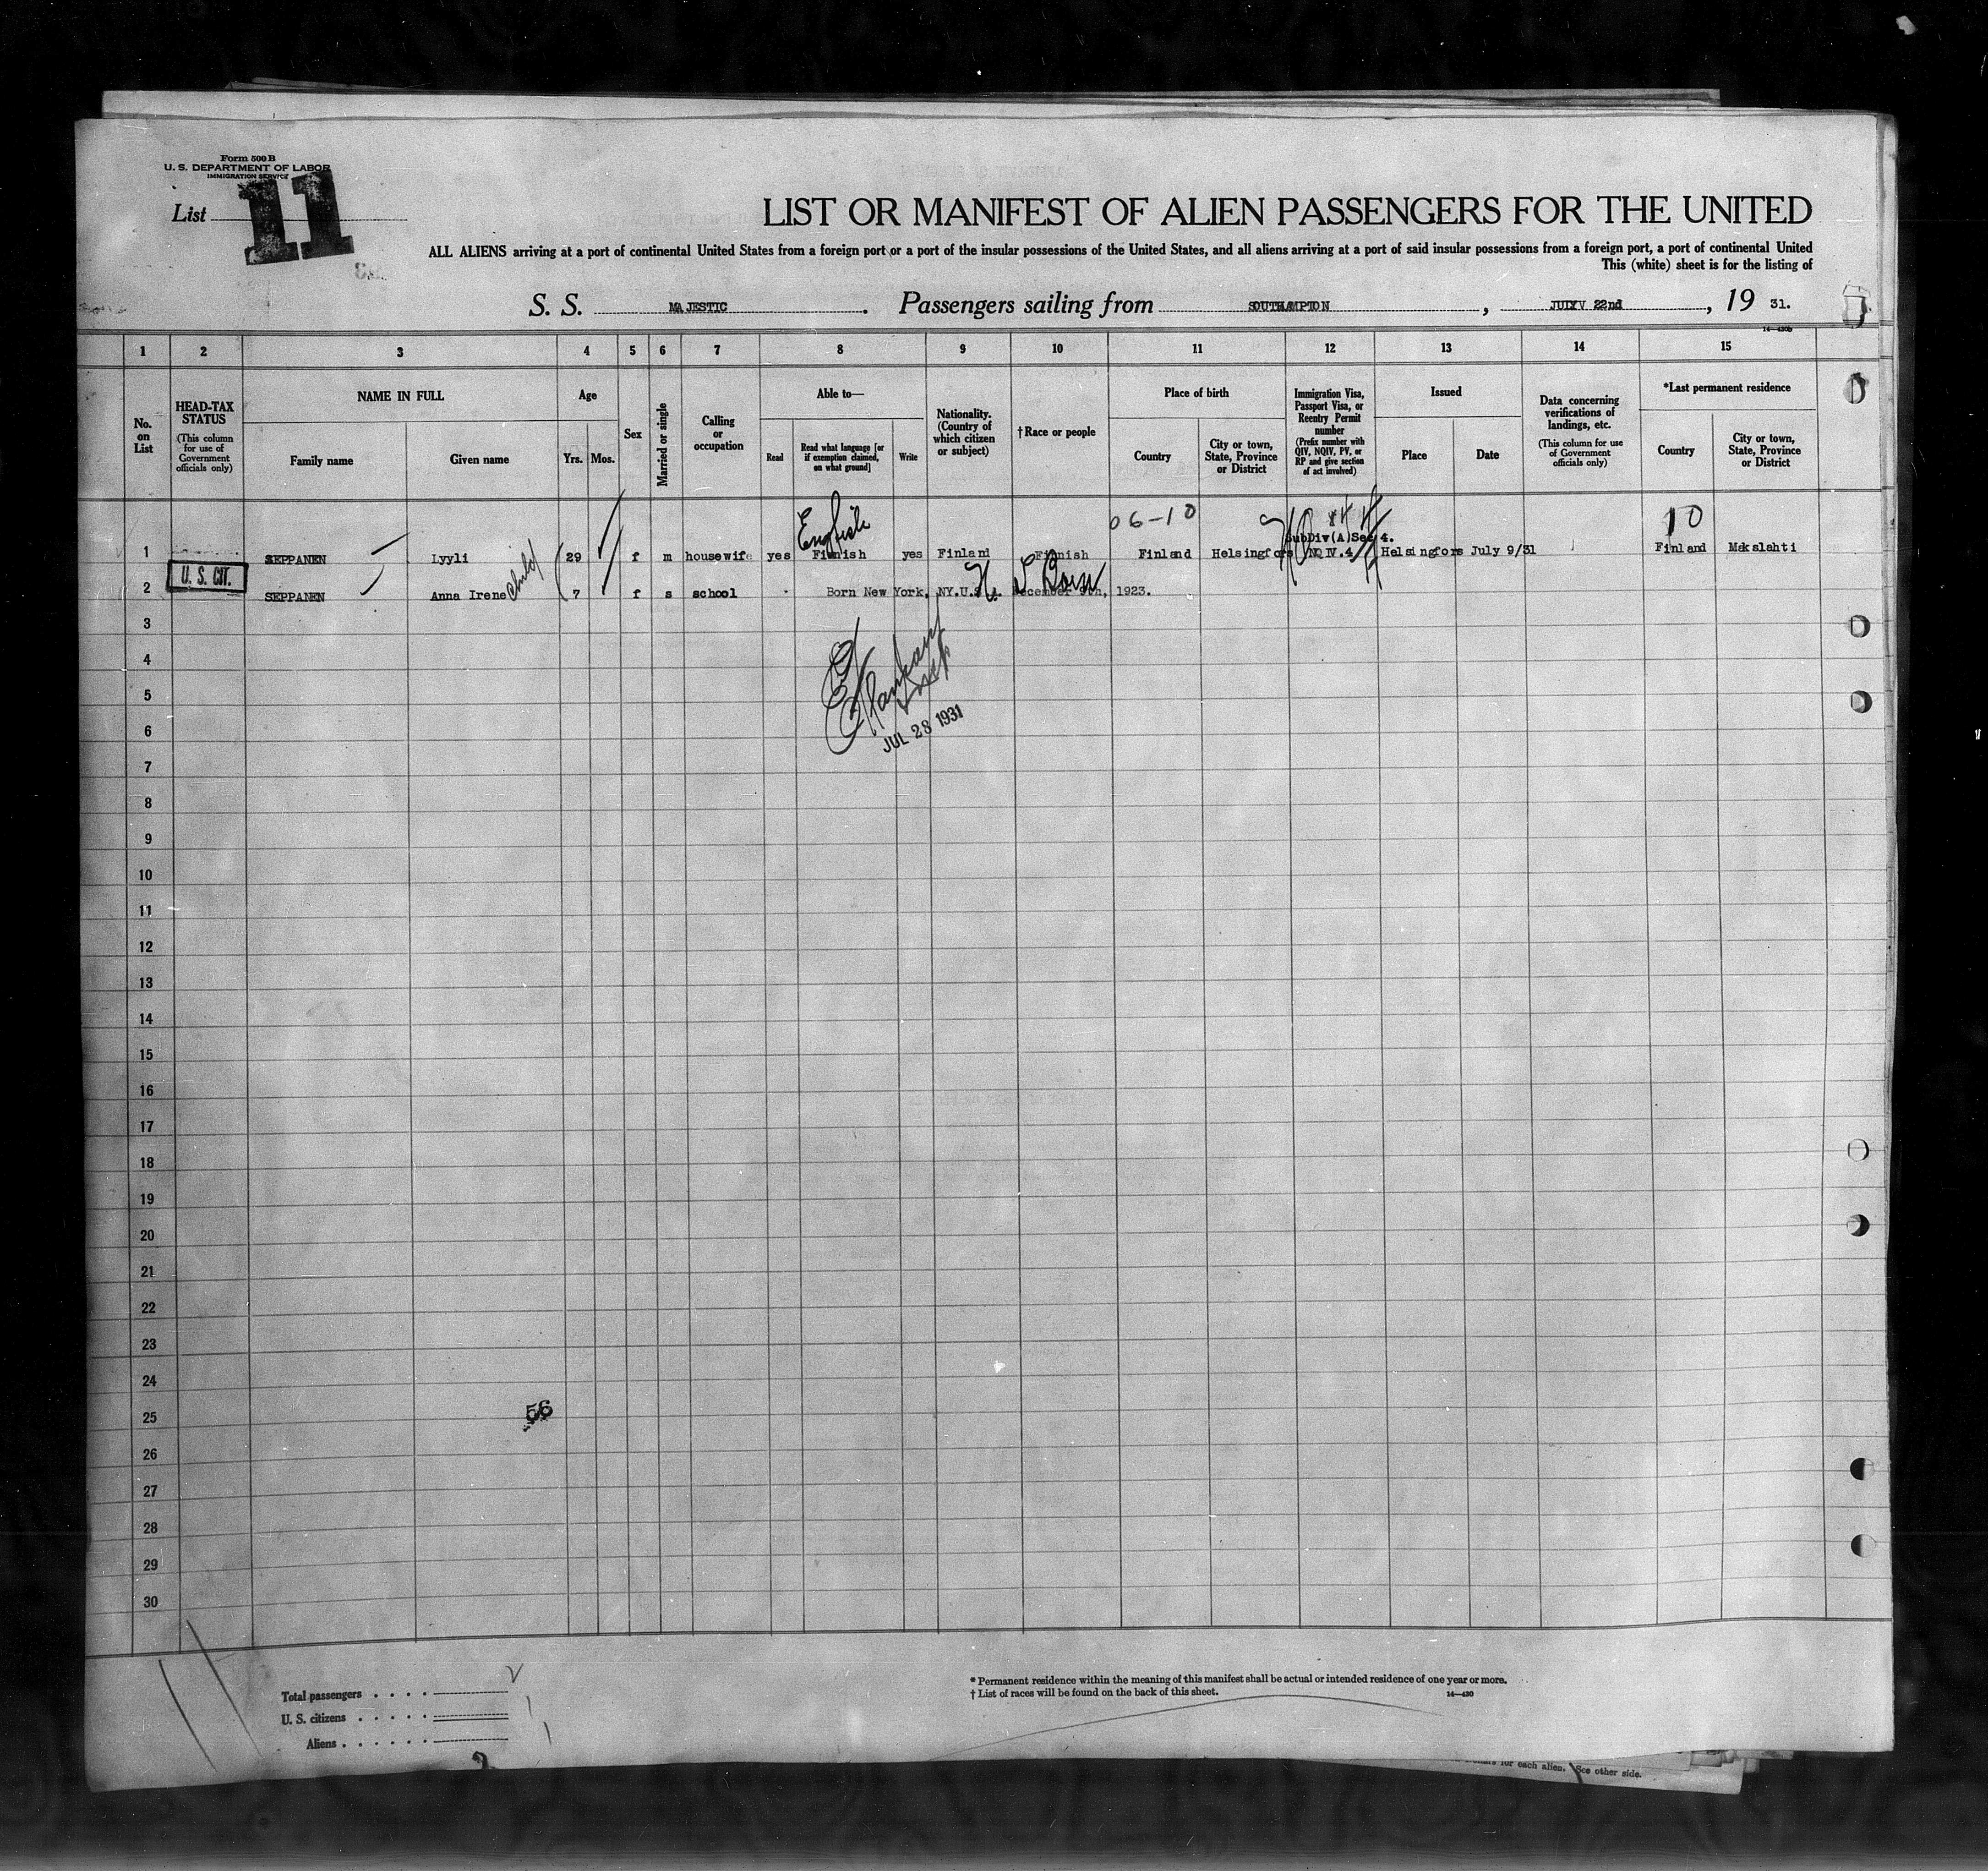 Form 500 B
U. S. DEPARTMENT OF LABOR
IMMIGRATION SERVICE
List 11
LIST OR MANIFEST OF ALIEN PASSENGERS FOR THE UNITED
ALL ALIENS arriving at a port of continental United States from a foreign port or a port of the insular possessions of the United States, and all aliens arriving at a port of said insular possessions from a foreign port, a port of continental United
This (white) sheet is for the listing of
S. S. MAJESTIC. Passengers sailing from SOUTHAMPTON, JULYV 22nd, 19 31.
1 2 3 4 5 6 7 8 9 10 11 12 13 14 15
No. on List
HEAD-TAX STATUS
(This column for use of Government officials only)
NAME IN FULL
Family name
Given name
Age
Yrs. Mos.
Sex
Married or single
Calling or occupation
Able to—
Read
Read what language [or if exemption claimed, on what ground]
Write
Nationality. (Country of which citizen or subject)
†Race or people
Place of birth
Country
City or town, State, Province or District
Immigration Visa, Passport Visa, or Reentry Permit number
(Prefix number with QIV, NQIV, PV, or RP and give section of act involved)
Issued
Place
Date
Data concerning verifications of landings, etc.
(This column for use of Government officials only)
*Last permanent residence
Country
City or town, State, Province or District
English
06-10
10
SubDiv(A)Sec 4.
1 SEPPANEN Lyyli 29 f m housewife yes Finnish yes Finland Finnish Finland Helsingfors NQIV.4 Helsingfors July 9/31 Finland Makslahti
U. S. CIT.
2 SEPPANEN Anna Irene child 7 f s school Born New York, NY.U.S.A. December 9th, 1923.
3
4
5
6
JUL 28 1931
7
8
9
10
11
12
13
14
15
16
17
18
19
20
21
22
23
24
25
56
26
27
28
29
30
Total passengers . . . . 2
U. S. citizens . . . . . 1
Aliens . . . . . . 1
* Permanent residence within the meaning of this manifest shall be actual or intended residence of one year or more.
† List of races will be found on the back of this sheet.
14—430
for each alien. See other side.